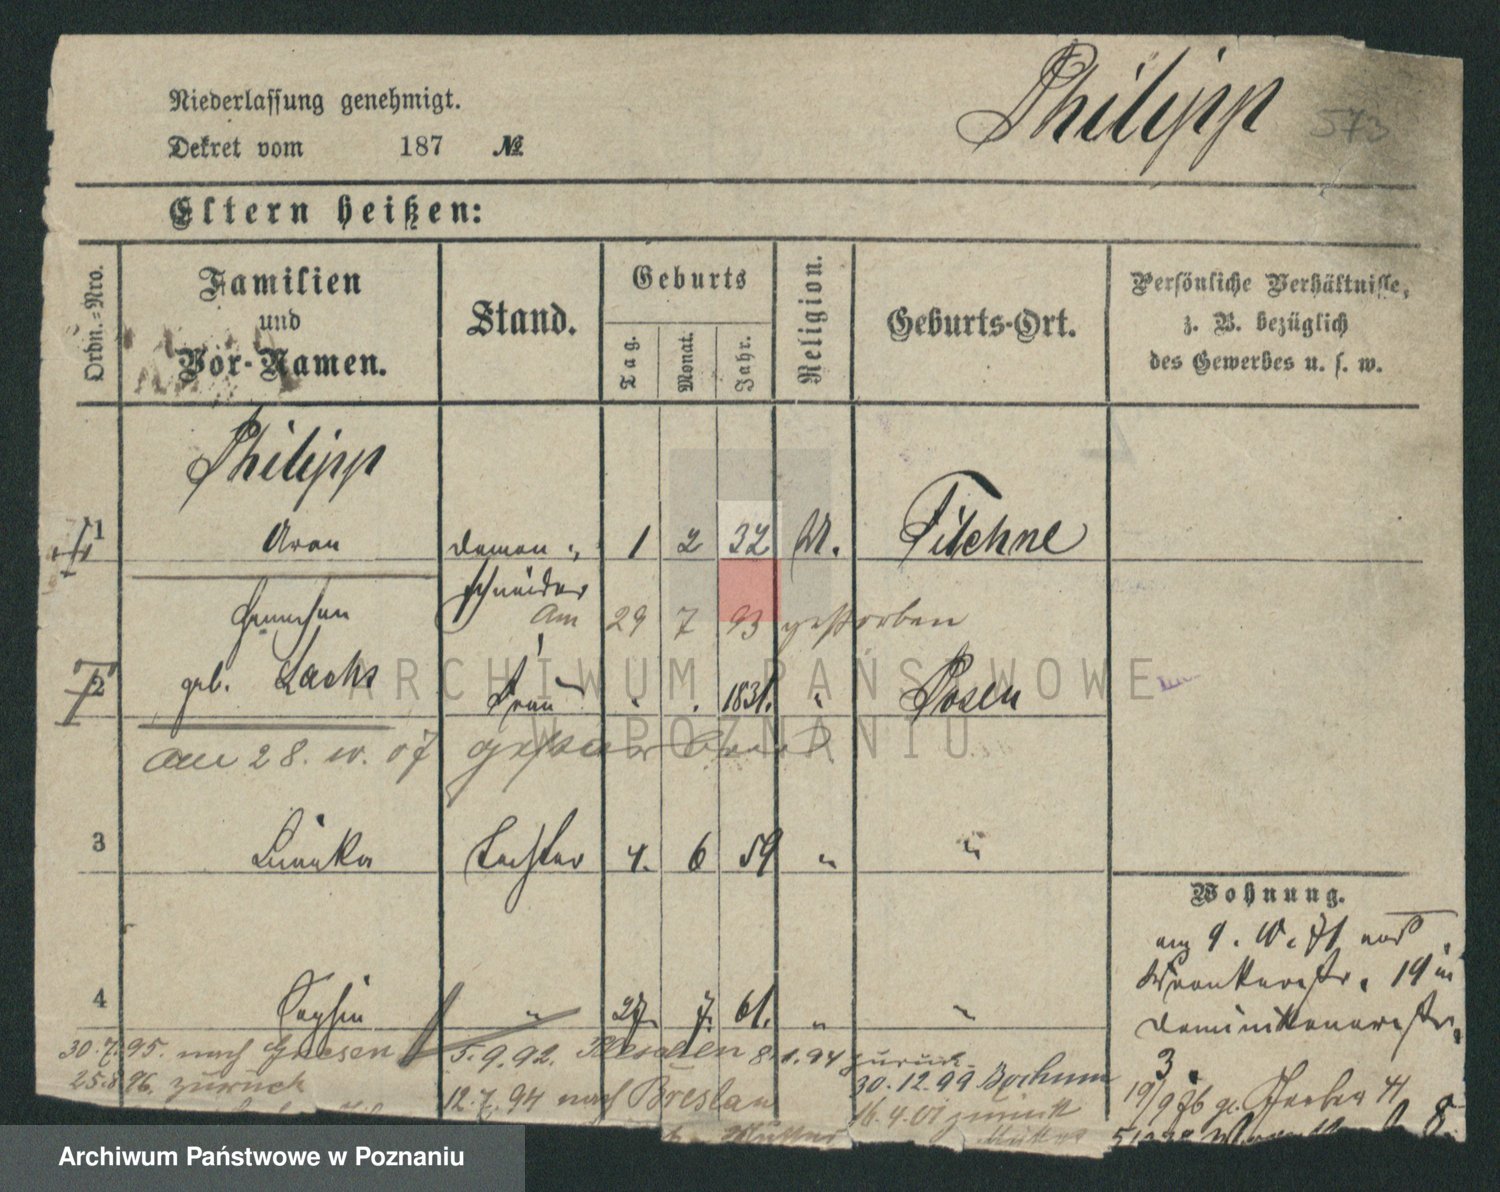 Philipp 573
Niederlassung genehmigt.
Dekret vom 187 №
Eltern heißen:
Ordn.-Nro.
Familien
und
Vor-Namen.
Stand.
Geburts
Tag.
Monat.
Jahr.
Religion.
Geburts-Ort.
Persönliche Verhältnisse,
z. B. bezüglich
des Gewerbes u. s. w.
Philipp
1 Aron Damen- 1 2 32 M. Filehne
schneider
Am 29 7 93 gestorben
2 geb. Lachs Frau " . 1831. " Posen
am 28. 10. 07 gestorben
3 Tochter 4. 6 59 " "
Wohnung.
am 9. 10. 71
Wronkerstr. 19 in
Dominikanerstr.
3.
4 " 27. 7. 61. " "
30.7.95. nach Gnesen 5.9.92. 8.1.94 zurück.
25.8.96. zurück 12.7.94 nach Breslau 30.12.99 Bochum
16.4.01 zurück
19/9 76
Mutter
8.
ARCHIWUM PAŃSTWOWE
W POZNANIU
Archiwum Państwowe w Poznaniu